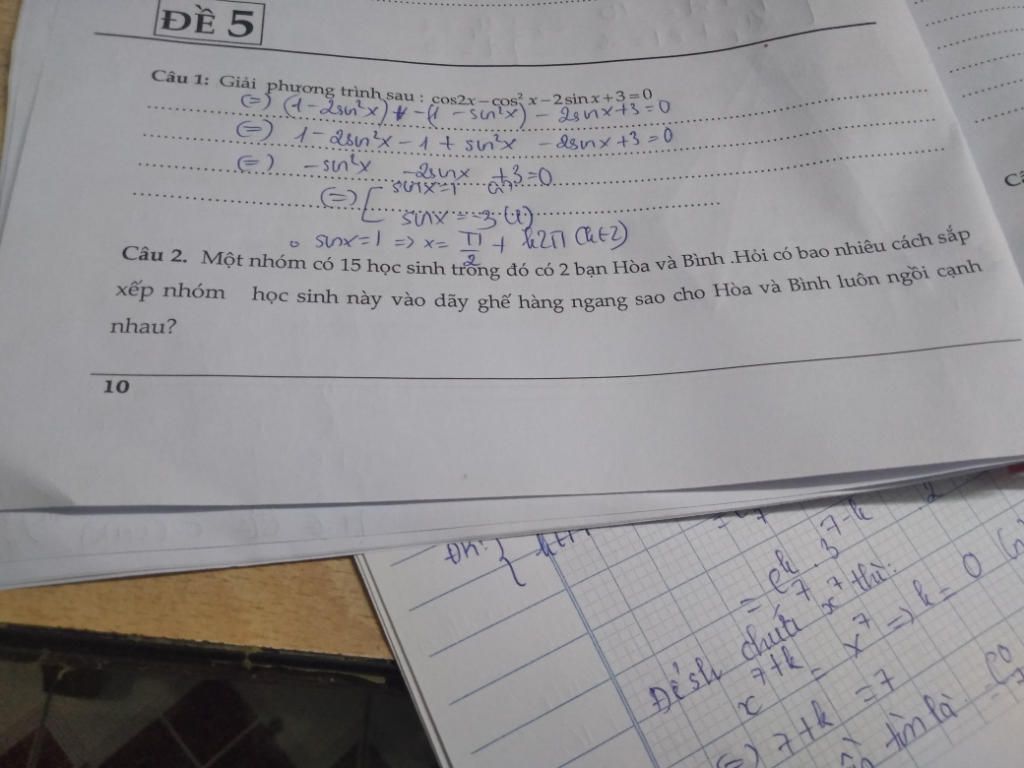 ĐỀ 5
Câu 1: Giải phương trình sau : cos2x – cos² x – 2sin x + 3 = 0
(=) (1 - 2sin²x) - (1 - sin²x) - 2sinx + 3 = 0
(=) 1 - 2sin²x - 1 + sin²x - 2sinx + 3 = 0
(=) - sin²x - 2sinx + 3 = 0
(=) [ sinx = 1 (n)
sinx = -3 (l)
∘ sinx = 1 => x = π/2 + k2π (k∈Z)
Câu 2. Một nhóm có 15 học sinh trong đó có 2 bạn Hòa và Bình .Hỏi có bao nhiêu cách sắp
xếp nhóm học sinh này vào dãy ghế hàng ngang sao cho Hòa và Bình luôn ngồi cạnh
nhau?
10
Đk: {
= C₇ᵏ . 3⁷⁻ᵏ
Để sh chứa x⁷ thì:
x⁷⁺ᵏ = x⁷ => k = 0
(=) 7 + k = 7
tìm là